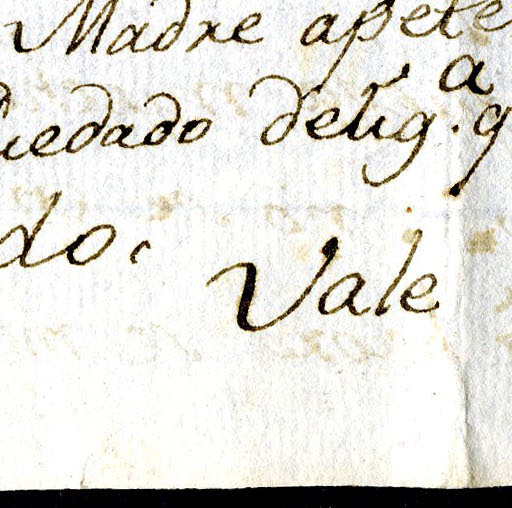 Madre apete
uedado delig.a q
do.
Vale